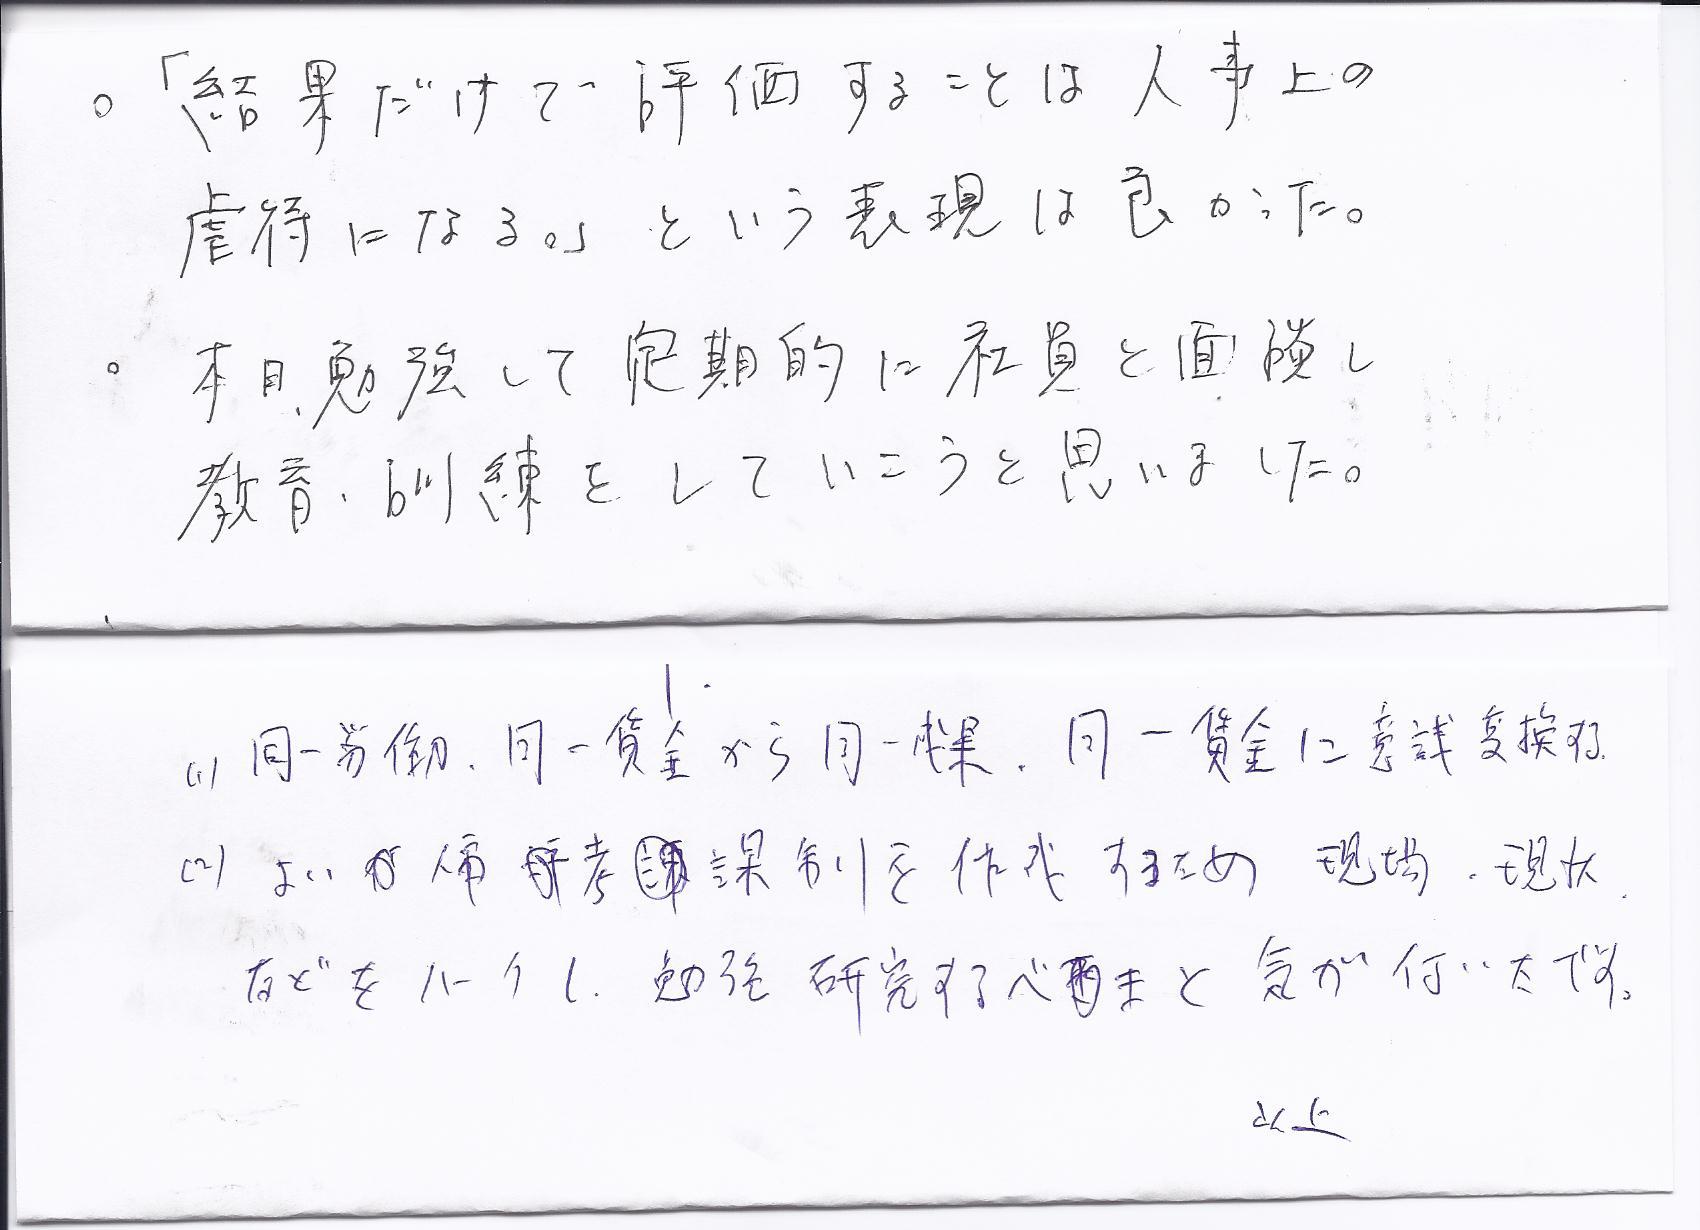 。「結果だけで評価することは人事上の
虐待になる。」という表現は良かった。
。本日、勉強して定期的に社員と面談し
教育、訓練をしていこうと思いました。
(1) 同一労働、同一賃金から同一成果、同一賃金に意識変換する.
(2) よい 人事考課制を作成するため 現場、現状、
などをハークし、勉強 研究するべ と 気が付いたです。
以上